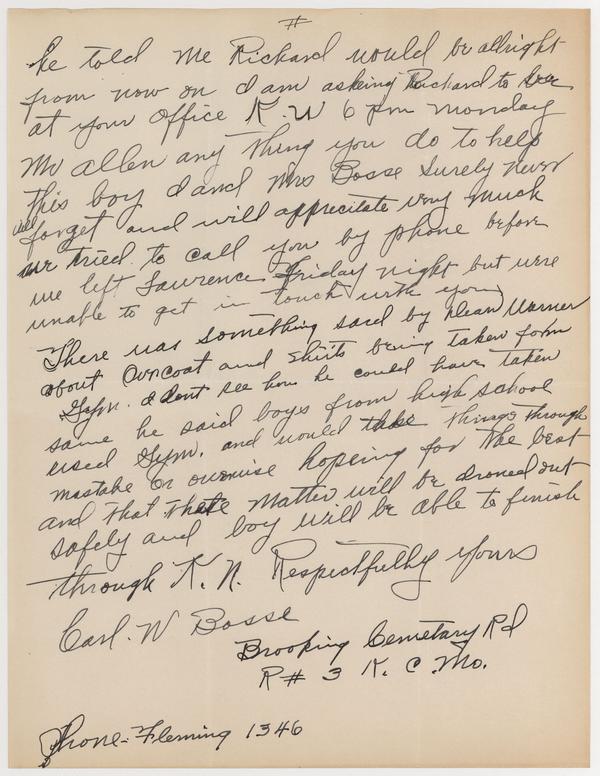 #
he told me Richard would be allright
from now on I am asking Richard to see
at your Office K.U 6 pm monday
Mr allen any thing you do to help
this boy I and Mrs Bosse surely never
will forget and will apprecitate very much
we tried to call you by phone before
we left Lawrence Friday night but were
unable to get in touch with you
There was something said by Dean Warner
about Overcoat and shirts being taken form
Gym. I dont see how he could have taken
same he said boys from high school
used Gym. and would take things through
mistake or owrmise hopeing for the best
and that matter will be droned out
safely and boy will be able to finish
through K. N. Respectfully yours
Carl. W Bosse
Brooking Cemetary Rd
R # 3 K. C. Mo.
Phone: Fleming 1346